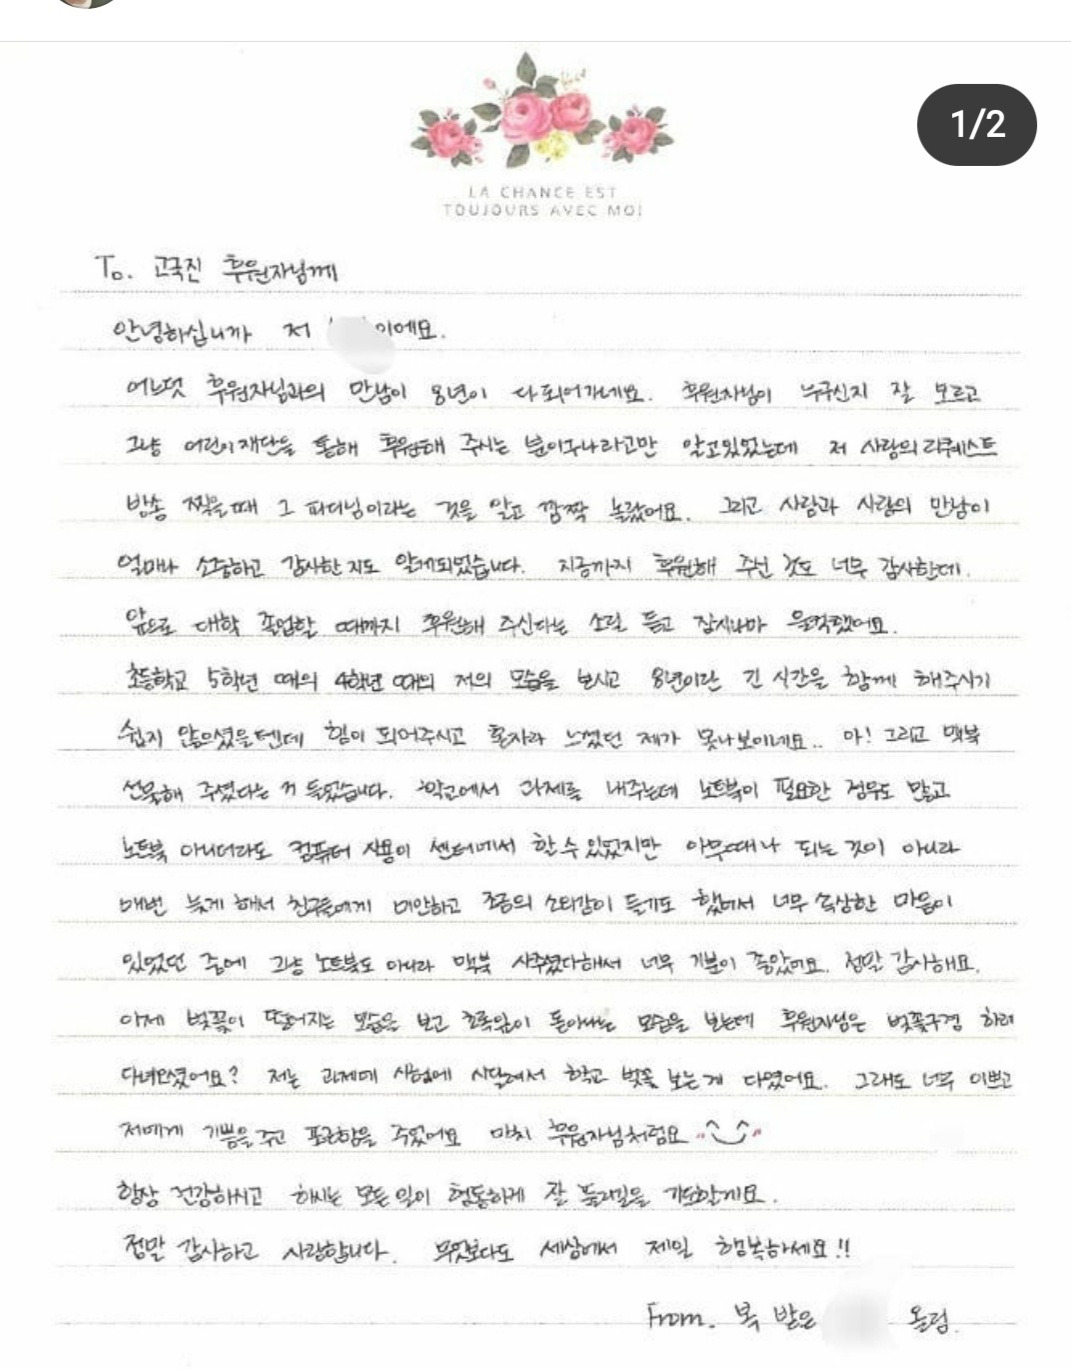 1/2
LA CHANCE EST
TOUJOURS AVEC MOI
To. 고국진 후원자님께
안녕하십니까 저 이에요.
어느덧 후원자님과의 만남이 8년이 다되어가네요. 후원자님이 누구신지 잘 모르고
그냥 어린이재단을 통해 후원해 주시는 분이구나라고만 알고있었는데 저 사랑의리퀘스트
방송 찍을때 그 피디님이라는 것을 알고 깜짝 놀랐어요. 그리고 사람과 사람의 만남이
얼마나 소중하고 감사한지도 알게되었습니다. 지금까지 후원해 주신 것도 너무 감사한데.
앞으로 대학 졸업할 때까지 후원해 주신다는 소릴 듣고 잠시나마 울컥했어요.
초등학교 5학년 때의 4학년 때의 저의 모습을 보시고 8년이란 긴 시간을 함께 해주시기
쉽지 않으셨을텐데 힘이 되어주시고 혼자라 느꼈던 제가 못나보이네요.. 아! 그리고 맥북
선물해 주셨다는 거 들었습니다. 학교에서 과제를 내주는데 노트북이 필요한 경우도 많고
노트북 아니더라도 컴퓨터 사용이 센터에서 할수있었지만 아무때나 되는 것이 아니라
매번 늦게 해서 친구들에게 미안하고 조금의 소외감이 들기도 했어서 너무 속상한 마음이
있었던 중에 그냥 노트북도 아니라 맥북 사주셨다해서 너무 기분이 좋았어요. 정말 감사해요.
이제 벚꽃이 떨어지는 모습을 보고 초록잎이 돋아나는 모습을 보는데 후원자님은 벚꽃구경 하러
다녀오셨어요? 저는 과제에 시험에 시달려서 학교 벚꽃 보는게 다였어요. 그래도 너무 이쁘고
저에게 기쁨을 주고 포근함을 주었어요 마치 후원자님처럼요
항상 건강하시고 하시는 모든 일이 형통하게 잘 풀리길을 기도할게요.
정말 감사하고 사랑합니다. 무엇보다도 세상에서 제일 행복하세요!!
From. 복 받은 올림.